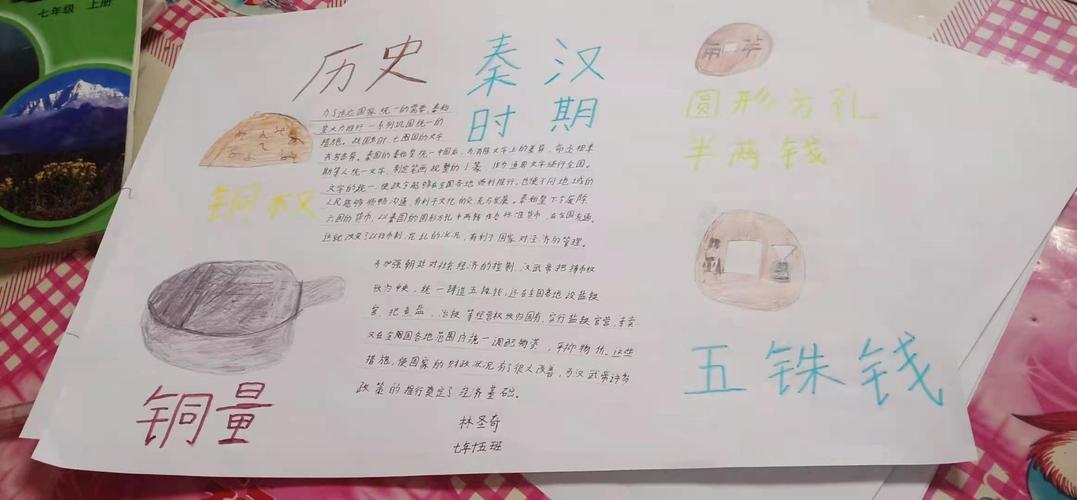 七年级 上册
历史 秦汉
时期
为了适应国家统一的需要,秦始
皇大力推行一系列巩固统一的
措施。战国时,七国的文字
各有差异。秦国的秦始皇统一中国后,为消除文字上的差异,命丞相李
斯等人统一文字,制定笔画规整的小篆,作为通用文字颁行全国。
文字的统一,使政令能够在全国各地顺利推行,也使不同地域的
人民能够顺畅沟通,有利于文化的交流与发展。秦始皇下令废除
六国的货币,以秦国的圆形方孔半两钱作为标准货币,在全国流通,
这就改变了以往币制混乱的状况,有利于国家对经济的管理。
为加强朝廷对社会经济的控制,汉武帝把铸币权
收归中央,统一铸造五铢钱;还在全国各地设盐铁
官,把煮盐、冶铁等经营权收归国有,实行盐铁官营、专卖
又在全国各地范围内统一调配物资,平抑物价。这些
措施,使国家的财政状况有了很大改善,为汉武帝许多
政策的推行奠定了经济基础。
林圣奇
七年十五班
铜权
铜量
两 半
圆形方孔
半两钱
五铢钱